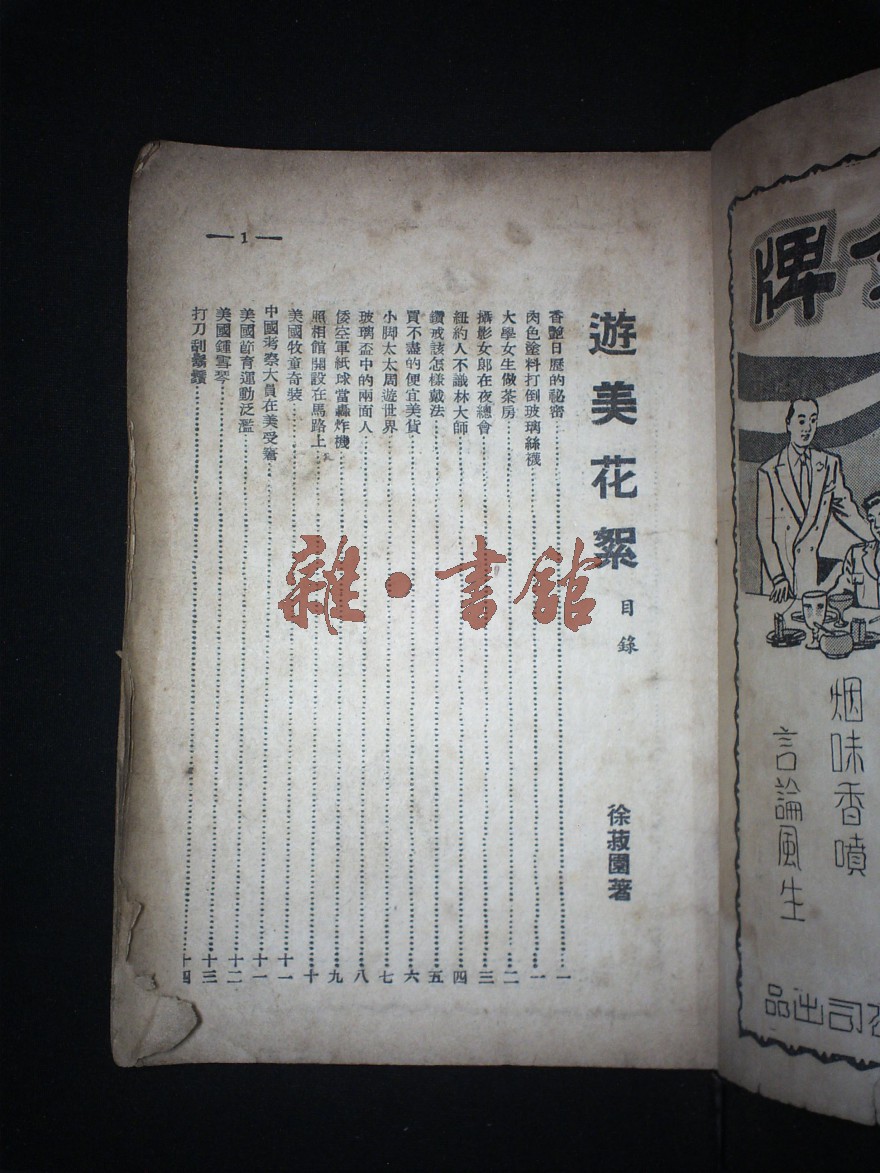 遊美花絮 目錄
徐菽園著
香艷日歷的祕密 一
肉色塗料打倒玻璃絲襪 一
大學女生做茶房 二
攝影女郎在夜總會 三
紐約人不識林大師 四
鑽戒該怎樣戴法 五
買不盡的便宜美貨 六
小脚太太周遊世界 七
玻璃盃中的兩面人 八
倭空軍紙球當轟炸機 九
照相館開設在馬路上 十
美國牧童奇裝 十一
中國考察大員在美受窘 十一
美國節育運動泛濫 十二
美國鍾雪琴 十三
打刀刮 十四
— 1 —
雜·書館
牌
烟味香噴
言論風生
司出品